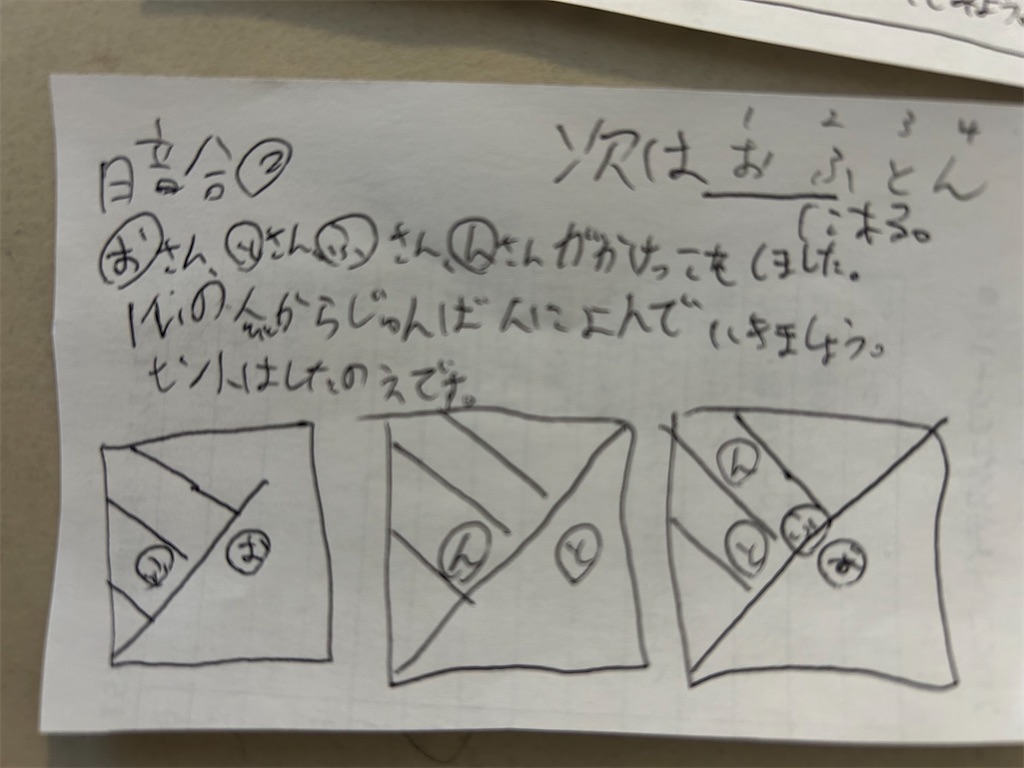 よう。
暗号②
1 2 3 4
次は おふとん
になる。
おさん、とさん ふさん、んさん がかけっこをしました。
1いの人からじゅんばんによんでいきましょう。
ヒントはしたのえです。
ふ お
ん と
ん と ふ お